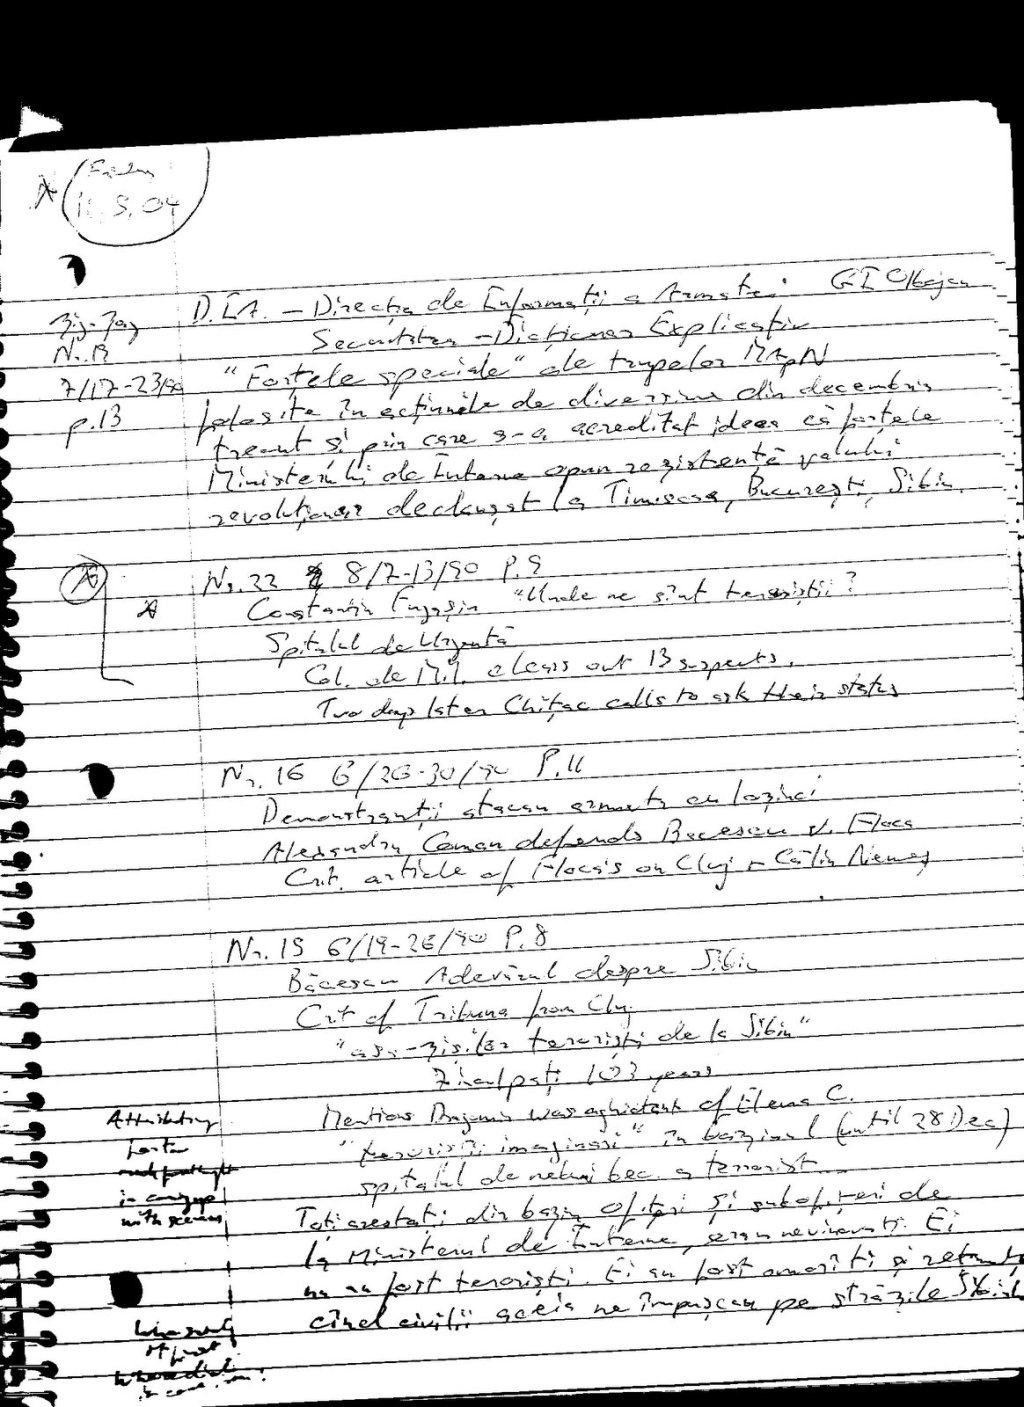 D.I.A. – Direcția de Informații a Armatei
Zig-Zag
Securitatea – Dicționar Explicativ
Nr. 19
"Forțele speciale" ale trupelor MApN
7/17-23/90
folosite în acțiunile de diversiune din decembrie
p. 13
trecut și prin care s-a acreditat ideea că forțele
Ministerului de Interne opun rezistență valului
revoluționar declanșat la Timisoara, București, Sibiu.
Nr. 22 8/7-13/90 P. 9
Constantin "Unde ne sînt teroriștii?
Spitalul de Urgență
Col. de M.I. clears out 13 suspects.
Two days later Chițac calls to ask their status
Nr. 16 6/26-30/90 P. 11
Demonstranții atacau armata cu lozinci
Alexandru Coman defends Bacescu v. Floca
Crit. article of Floca's on Cluj – Călin Nemeș
Nr. 15 6/19-26/90 P. 8
Băcescu Adevărul despre Sibiu
Crit of Tribuna from Cluj
"așa-zișilor teroriști de la Sibiu"
7 inculpați 103 years
Mentions was aghiotant of Elena C.
Attributing
"teroriștii imaginari" în bazinul (until 28 Dec)
spitalul de nebuni bec. a terorist...
with
Toți arestați din bazin ofițeri și subofițeri de
la Ministerul de Interne, erau nevinovați. Ei
nu au fost teroriști. Ei au fost omorîți și
cînd civilii aceia ne împușcau pe străzile